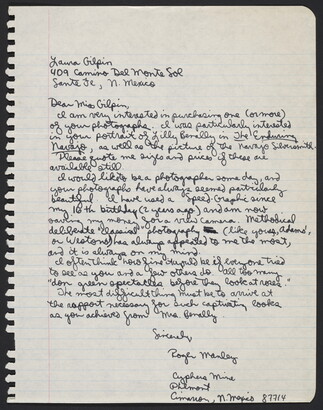 Laura Gilpin
409 Camino Del Monte Sol
Santa Fe, N. Mexico
Dear Miss Gilpin,
I am very interested in purchasing one (or more)
of your photographs. I was particularly interested
in your portrait of Lilly Benally in The Enduring
Navajo, as well as the picture of the Navajo Silversmith.
Please quote me sizes and prices if these are
available still.
I would like to be a photographer some day, and
your photographs have always seemed particularly
beautiful. I have used a Speed Graphic since
my 16th birthday (2 years ago) and am now
saving my money for a view camera. Methodical
deliberate "classical" photography (like yours, Adams',
or Westons) has always appealed to me the most,
and it is always on my mind.
I often think how fine it would be if everyone tried
to see as you and a few others do. All too many
"don green spectacles before they look at roses."
The most difficult thing must be to arrive at
the rapport necessary for such captivating looks
as you achieved from Mrs. Benally.
Sincerely,
Roger Manley
Cyphers Mine
Philmont
Cimarron, N. Mexico 87714